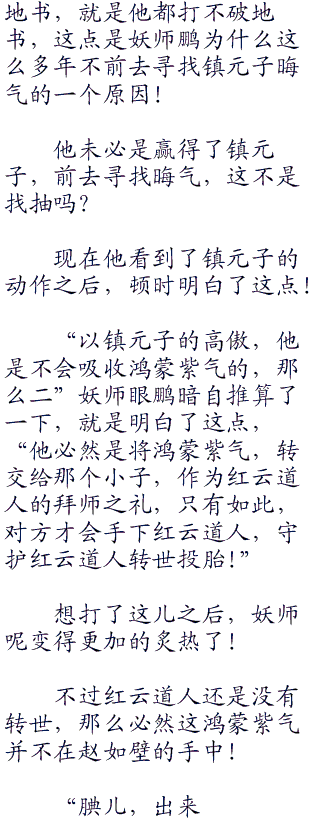 地书，就是他都打不破地
书，这点是妖师鹏为什么这
么多年不前去寻找镇元子晦
气的一个原因！
他未必是赢得了镇元
子，前去寻找晦气，这不是
找抽吗？
现在他看到了镇元子的
动作之后，顿时明白了这点！
“以镇元子的高傲，他
是不会吸收鸿蒙紫气的，那
么二”妖师眼鹏暗自推算了
一下，就是明白了这点，
“他必然是将鸿蒙紫气，转
交给那个小子，作为红云道
人的拜师之礼，只有如此，
对方才会手下红云道人，守
护红云道人转世投胎！”
想打了这儿之后，妖师
呢变得更加的炙热了！
不过红云道人还是没有
转世，那么必然这鸿蒙紫气
并不在赵如壁的手中！
“腆儿，出来